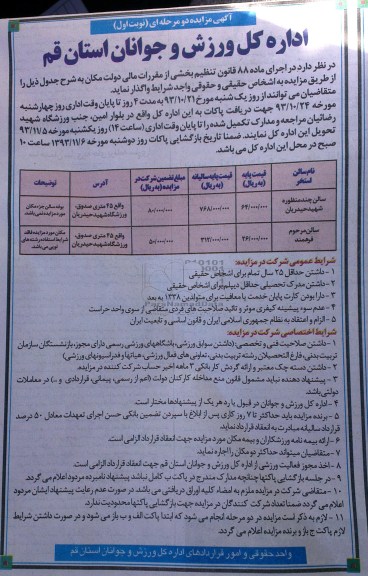 آگهی مزایده دو مرحله ای (نوبت اول)
اداره کل ورزش و جوانان استان قم
در نظر دارد در اجرای ماده ۸۸ قانون تنظیم بخشی از مقررات مالی دولت مکان به شرح جدول ذیل را
از طریق مزایده به اشخاص حقیقی و حقوقی واجد شرایط واگذار نماید.
متقاضیان می توانند از روز یک شنبه مورخ ۹۳/۱۰/۲۱ به مدت ۴ روز تا پایان وقت اداری روز چهارشنبه
مورخه ۹۳/۱۰/۲۴ جهت دریافت پاکات به این اداره کل واقع در بلوار امین، جنب ورزشگاه شهید
رضائیان مراجعه و مدارک تکمیل شده را تا پایان وقت اداری (ساعت ۱۴) روز یکشنبه مورخه ۹۳/۱۱/۵
تحویل این اداره کل نمایند. ضمنا تاریخ بازگشایی پاکات روز دوشنبه مورخه ۱۳۹۳/۱۱/۶ ساعت ۱۰
صبح در محل این اداره کل می باشد.
نام سالن استخر | قیمت پایه (به ریال) | قیمت پایه سالیانه (به ریال) | مبلغ تضمین شرکت در مزایده (به ریال) | آدرس | توضیحات
سالن چند منظوره شهید حیدریان | ۶۴/۰۰۰/۰۰۰ | ۷۶۸/۰۰۰/۰۰۰ | ۸۰/۰۰۰/۰۰۰ | واقع ۲۵ متری صدوق، ورزشگاه شهید حیدریان | بوفه سالن جزء مکان مورد مزایده نمی باشد.
سالن مرحوم فرهمند | ۲۶/۰۰۰/۰۰۰ | ۳۱۲/۰۰۰/۰۰۰ | ۵۰/۰۰۰/۰۰۰ | واقع ۲۵ متری صدوق، ورزشگاه شهید حیدریان | مکان مورد مزایده فاقد شرایط استفاده رشته های توپی می باشد.
شرایط عمومی شرکت در مزایده:
۱ - داشتن حداقل ۲۵ سال تمام برای اشخاص حقیقی
۲ - داشتن مدرک تحصیلی حداقل دیپلم برای اشخاص حقیقی
۳ - دارا بودن کارت پایان خدمت یا معافیت برای متولدین ۱۳۳۸ به بعد
۴ - عدم سوء پیشینه کیفری موثر و تائید صلاحیت های فردی متقاضی از سوی واحد حراست
۵ - التزام و اعتقاد به نظام جمهوری اسلامی ایران و قانون اساسی و تابعیت ایران
شرایط اختصاصی شرکت در مزایده:
۱ - داشتن صلاحیت فنی و تخصصی: (داشتن سوابق ورزشی، باشگاههای ورزشی رسمی دارای مجوز، بازنشستگان سازمان
تربیت بدنی، فارغ التحصیلان رشته تربیت بدنی، تعاونی های فعال ورزشی، هیاتها و فدراسیونهای ورزشی)
۲ - داشتن دسته چک معتبر و ارائه گردش کار بانکی ۳ ماهه اخیر حساب شرکت کننده در مزایده.
۳ - پیشنهاد دهنده نباید مشمول قانون منع مداخله کارکنان دولت (اعم از رسمی، پیمانی، قراردادی و ...) در معاملات
دولتی باشد.
۴ - اداره کل ورزش و جوانان در قبول یا رد هر یک از پیشنهادها مختار است.
۵ - برنده مزایده باید حداکثر تا ۷ روز کاری پس از ابلاغ با سپردن تضمین بانکی حسن اجرای تعهدات معادل ۵۰ درصد
قرارداد سالیانه مبادرت به انعقاد قرارداد نماید.
۶ - ارائه بیمه نامه ورزشکاران و بیمه مکان مورد مزایده جهت انعقاد قرارداد الزامی است.
۷ - متقاضیان میتوانند حداکثر دو مکان را اجاره نمایند.
۸ - اخذ مجوز فعالیت ورزشی از اداره کل ورزش و جوانان استان قم جهت انعقاد قرارداد الزامی است.
۹ - در جلسه بازگشایی پاکتها چنانچه مدارک مندرج در پاکت ب کامل نباشد پیشنهاد نامبرده مردود اعلام می گردد
۱۰ - متقاضی شرکت در مزایده ملزم به امضاء کلیه اوراق دریافتی می باشد. در صورت عدم رعایت پیشنهاد ایشان مردود
اعلام می گردد ضمنا تعداد شرکت کنندگان در مزایده جهت بازگشایی پاکتها محدودیت ندارد.
۱۱ - لازم به ذکر است مزایده در دو مرحله انجام می شود که ابتدا پاکت الف و ب باز می شود و در صورت داشتن شرایط
لازم پاکت ج باز و برنده مزایده اعلام می گردد.
واحد حقوقی و امور قراردادهای اداره کل ورزش و جوانان استان قم